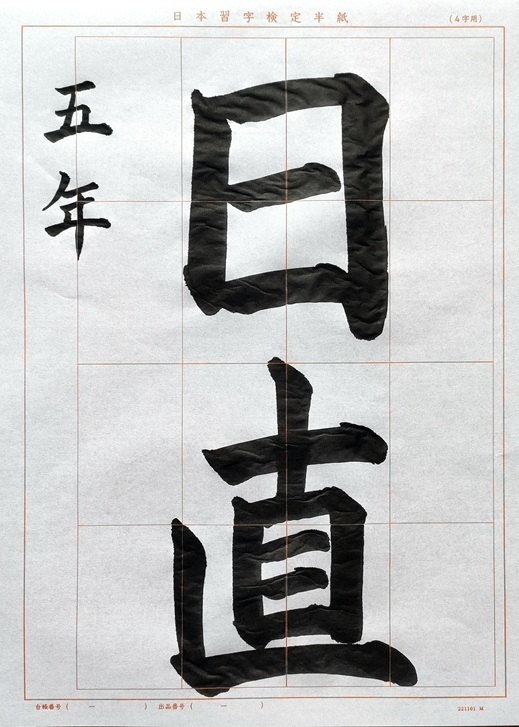 日本習字検定半紙
(4字用)
日直
五年
台帳番号 ( ー ) 出品番号 ( ー )
221101 M